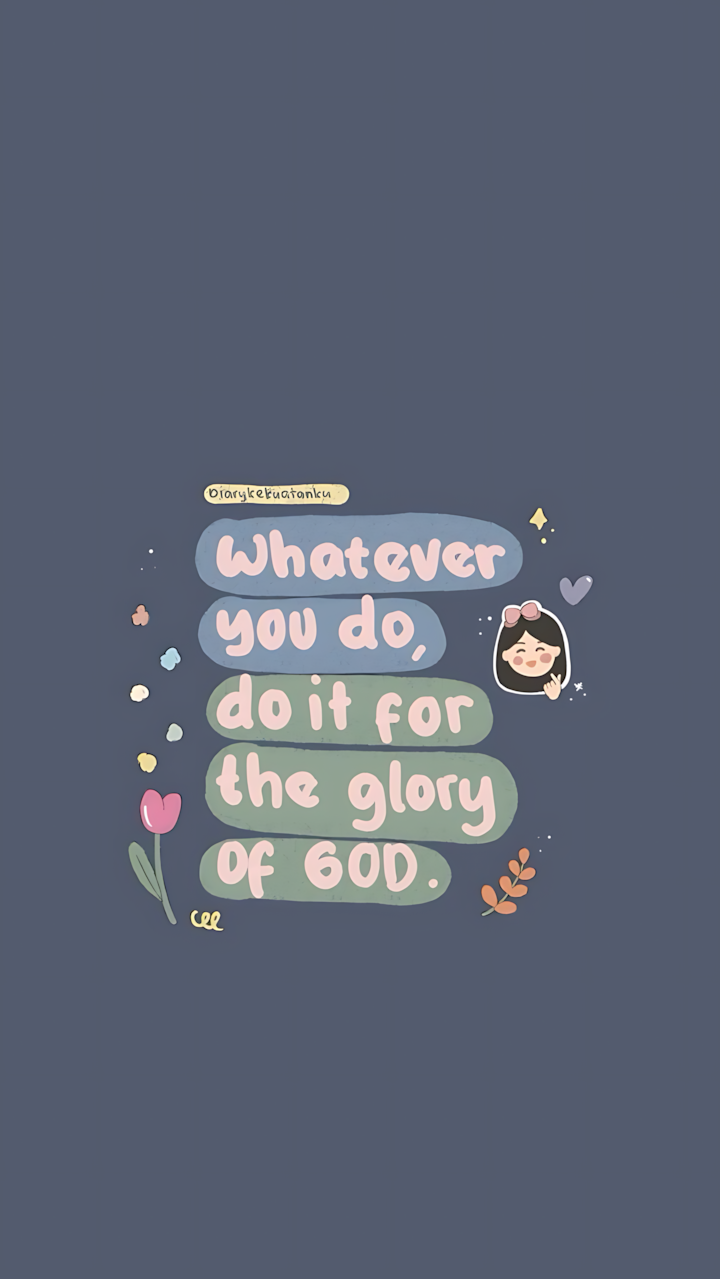 Diarykekuatanku
Whatever
you do,
do it for
the glory
OF GOD.